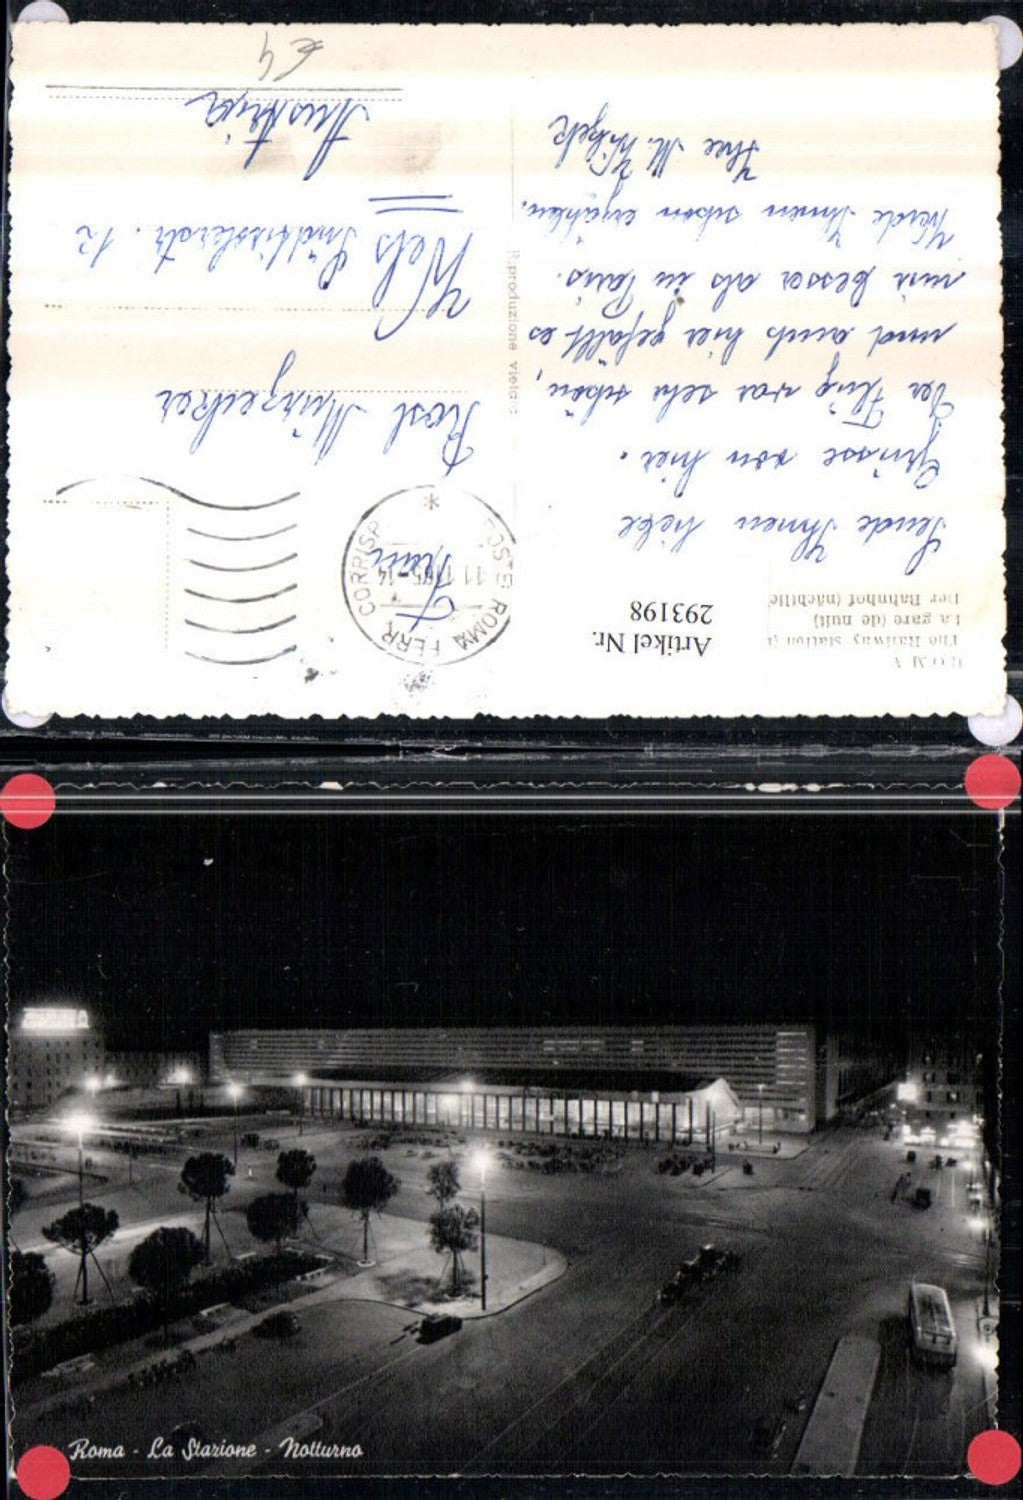 ROMA
The Railway station
La gare (de nuit)
Der Bahnhof (nächtlic
Artikel Nr.
293198
Sende Ihnen liebe
Grüsse von hier.
Der Flug war sehr schön,
und auch hier gefällt es
mir besser als in Paris.
Werde Ihnen schon erzählen.
Ihre M.
Riproduzione vietata
POSTE ROMA FERR CORRISP
65-14
Rosl
Wels Südtirolerstr. 12
Austria
€ 4
Roma - La Stazione - Notturno